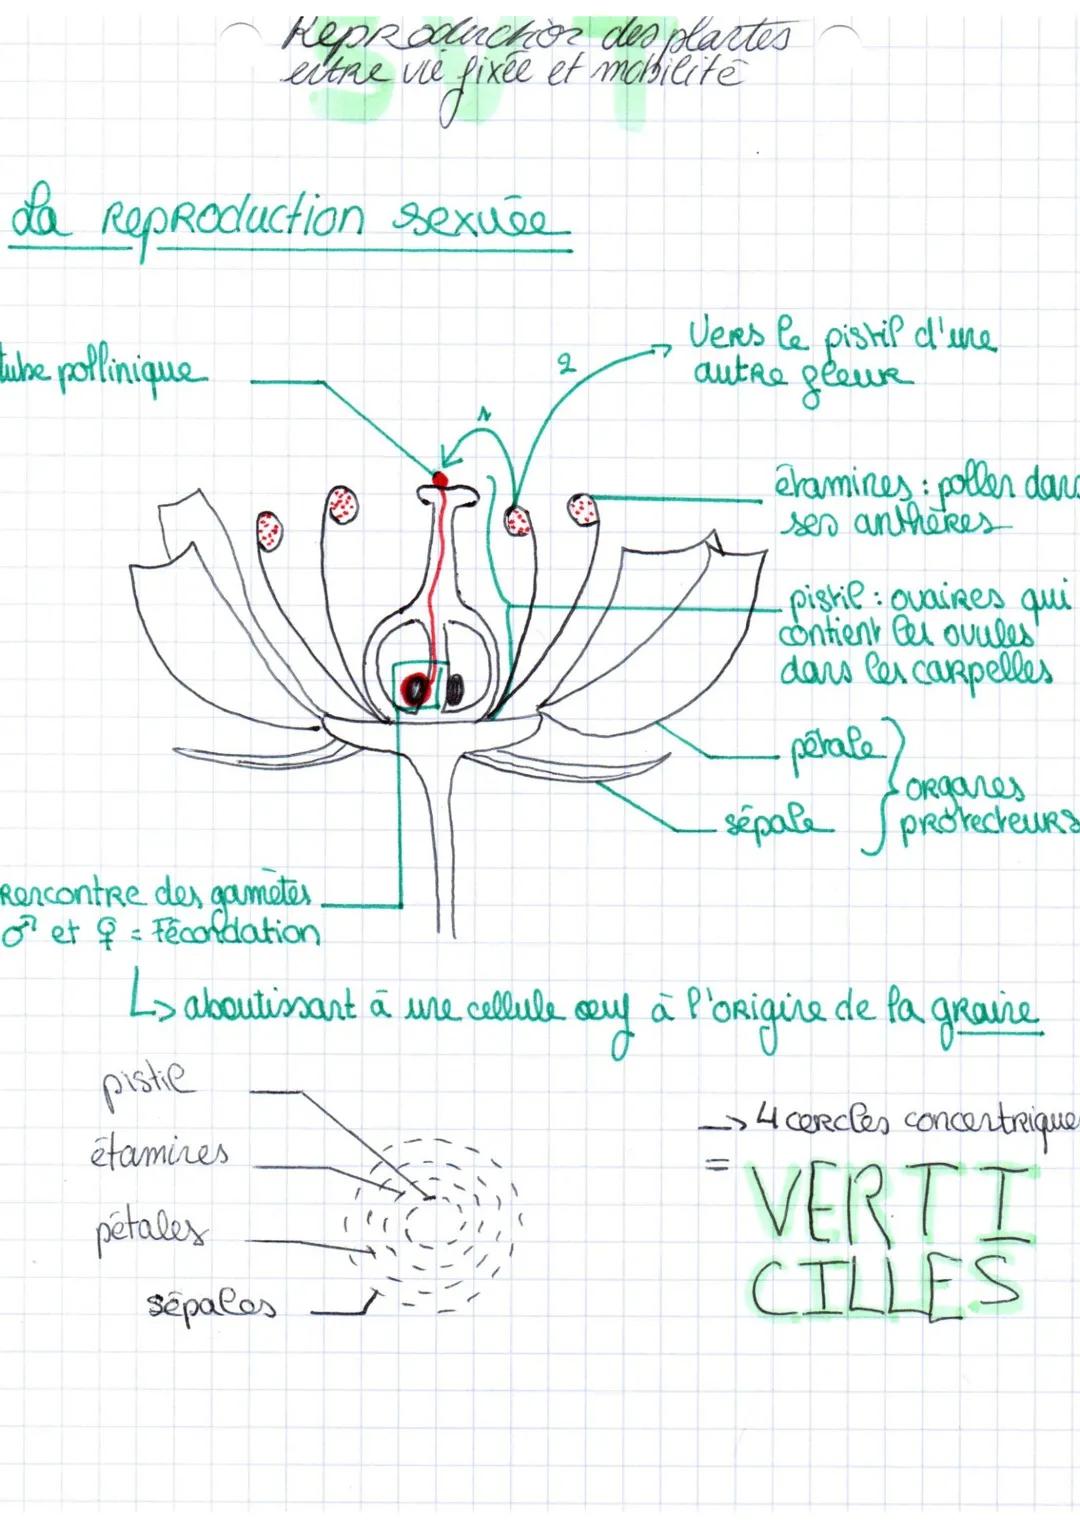 SVT
Reproduction des plantes
entre vie fixée et mobilité
La Reproduction sexuée
tube pollinique
2
Vers le pistil d'une
autre fleur
1
étamines : pollen dans
ses anthères
pistil : ovaires qui
contient les ovules
dans les carpelles
pétale
sépale
organes
protecteurs
Rencontre des gamètes
♂ et ♀ = Fécondation
↳ aboutissant à une cellule œuf à l'origine de la graine
pistil
étamines
pétales
sépales
→ 4 cercles concentriques
= VERTI
CILLES